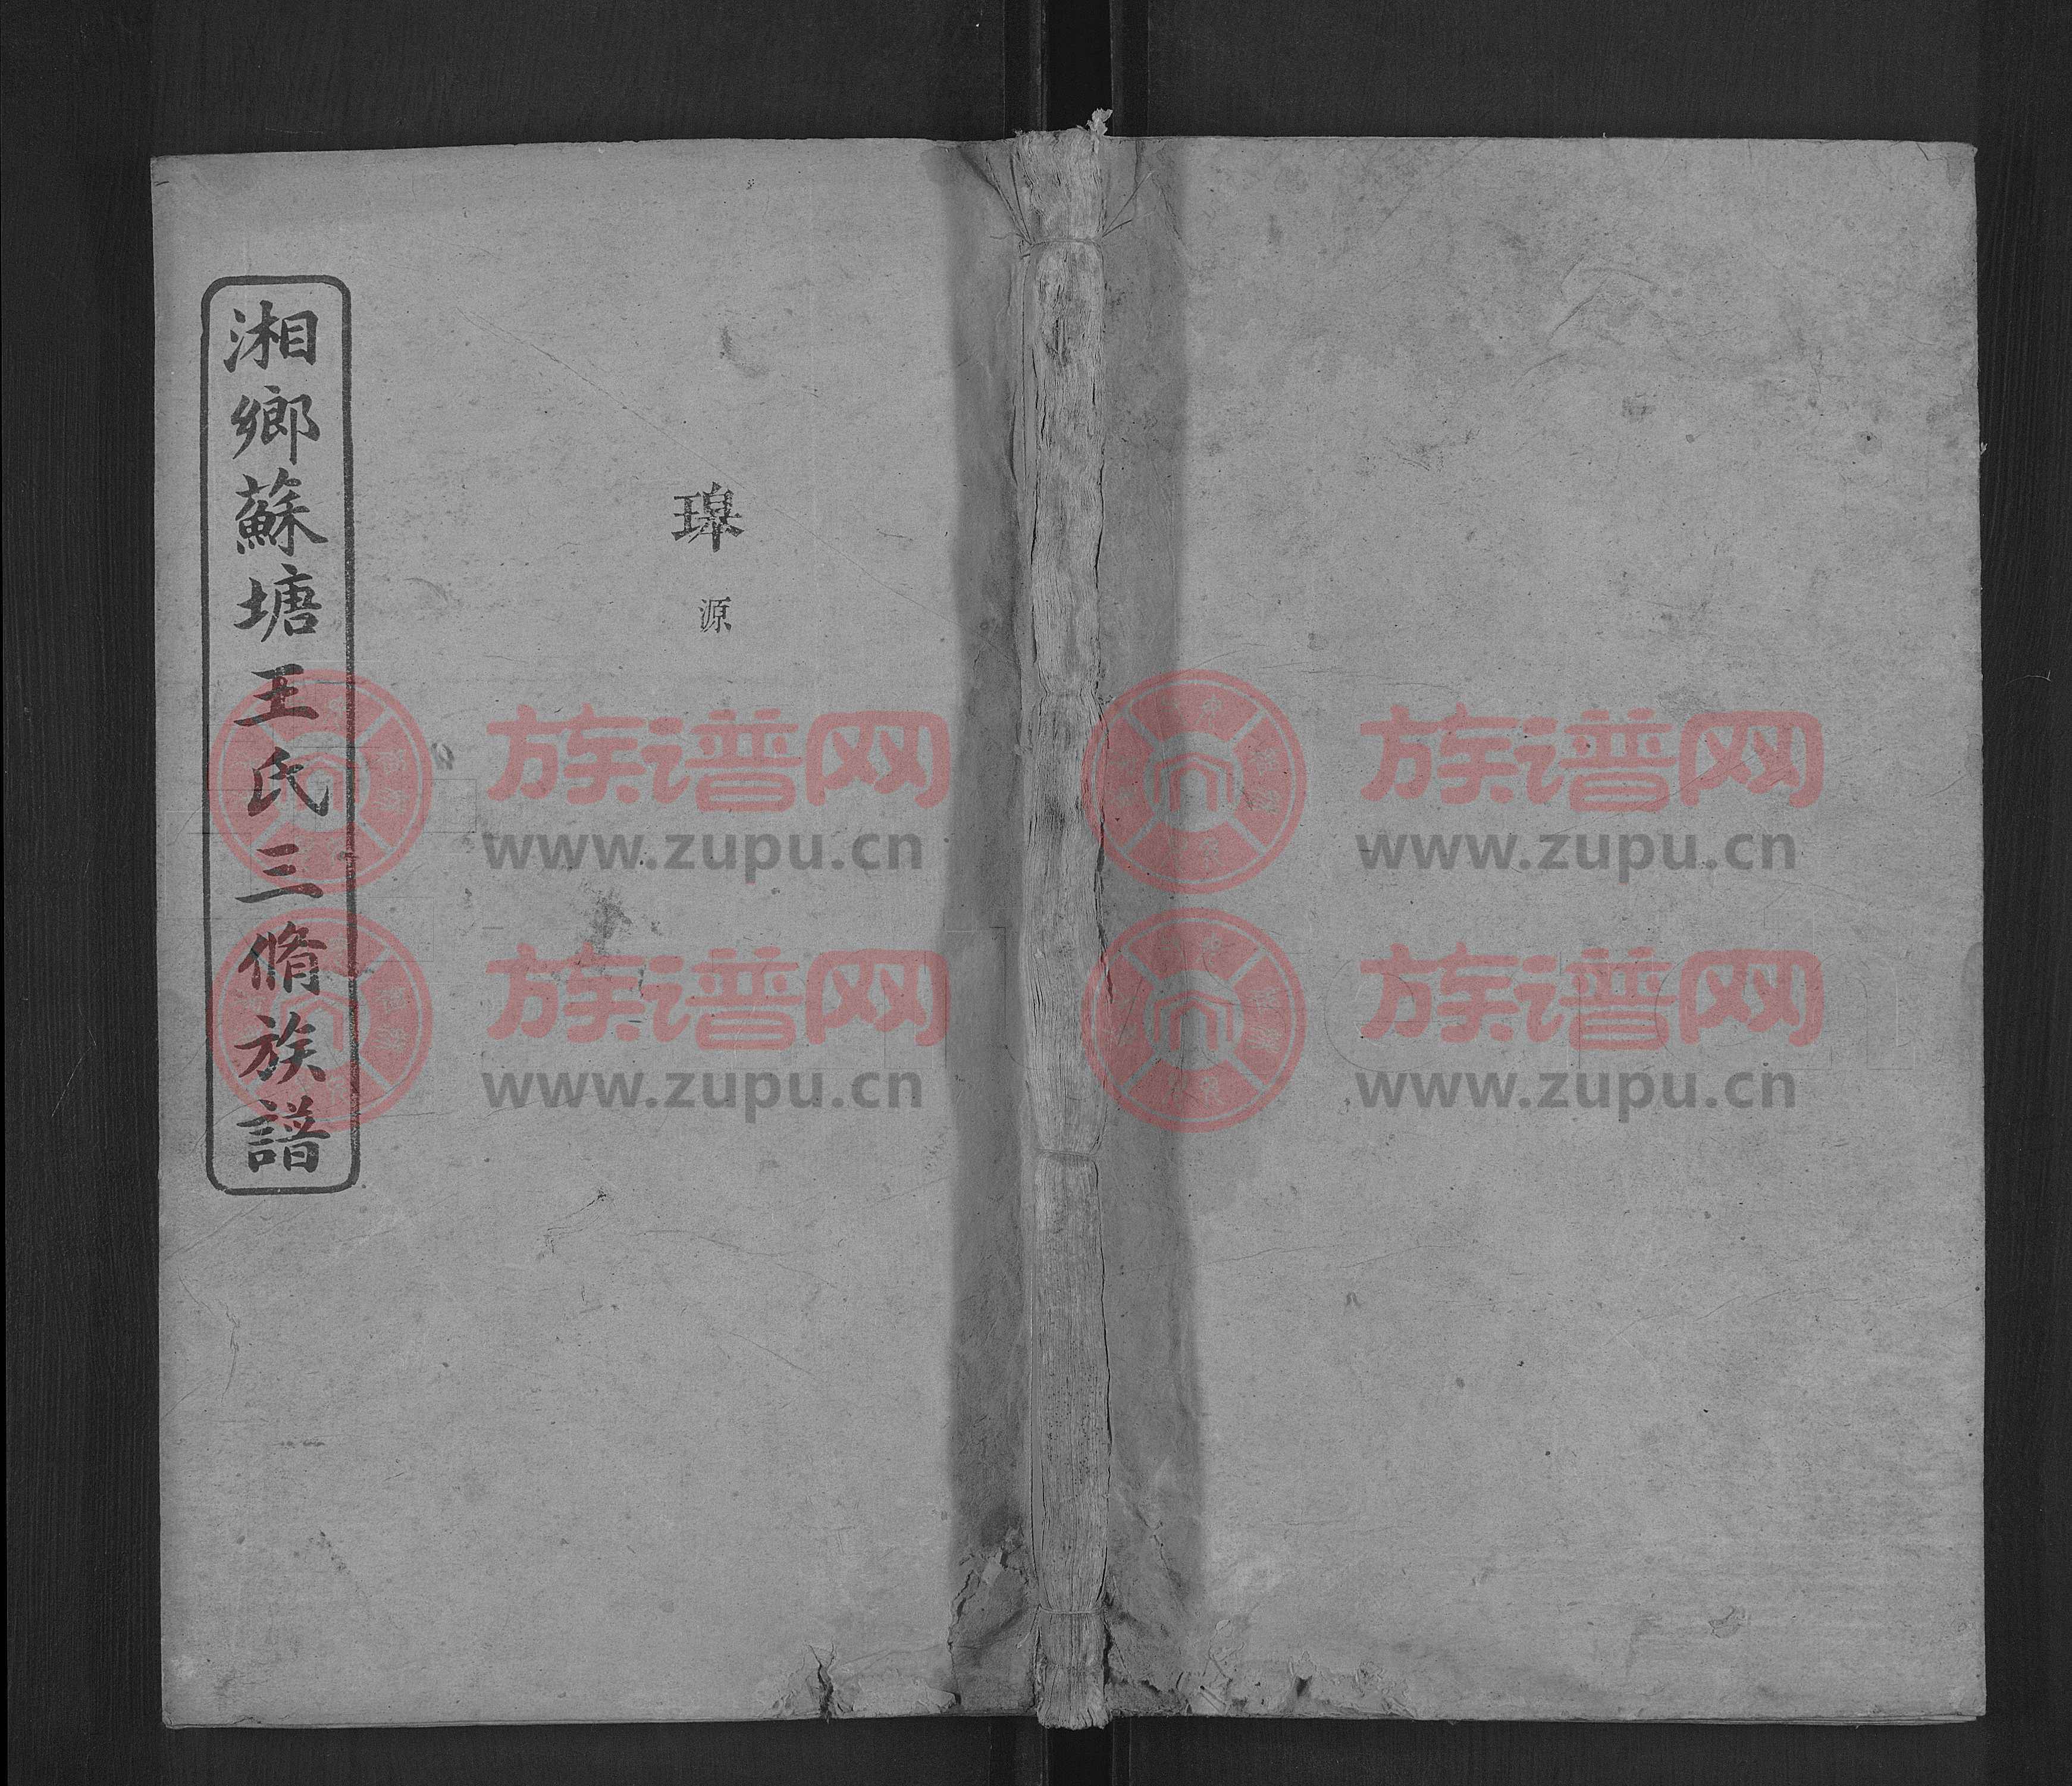 湘鄉蘇塘王氏三脩族譜
源
族谱网
www.zupu.cn
族谱网
www.zupu.cn
族谱网
www.zupu.cn
族谱网
www.zupu.cn